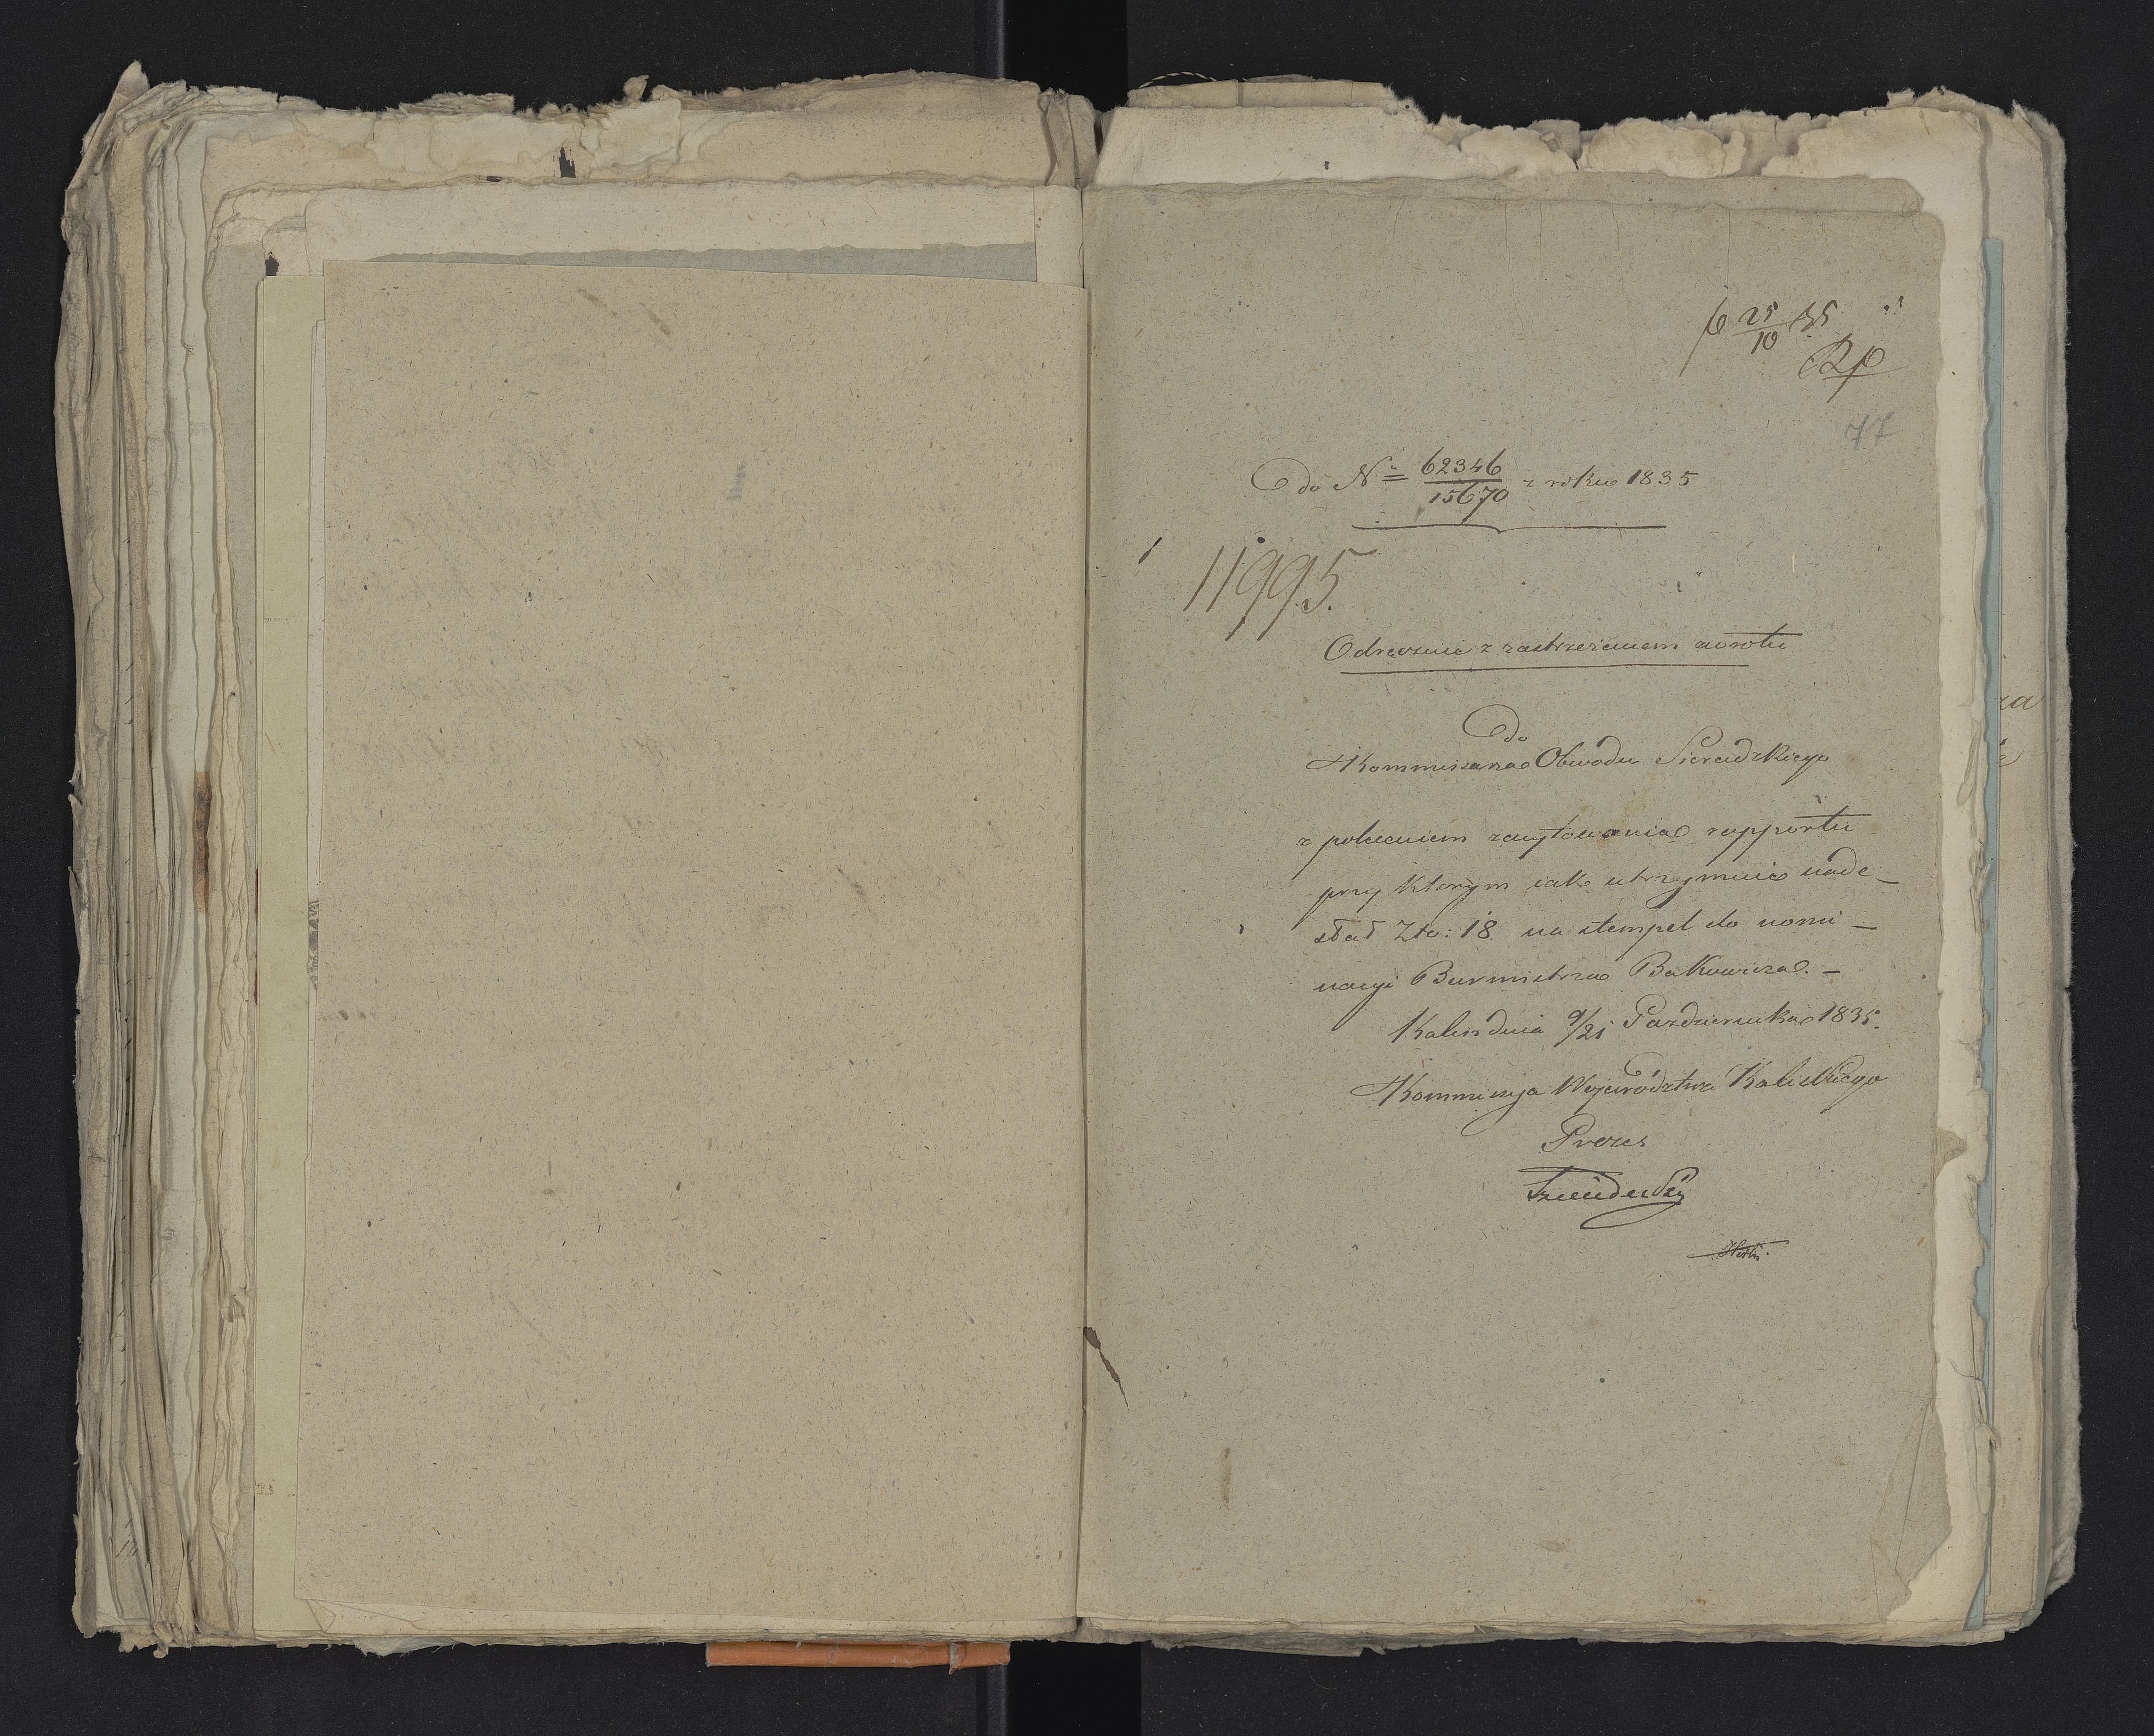 p 25/10 35
Rp
77
do No 62346/15670 z roku 1835
11995.
Odręcznie z zastrzeżeniem zwrotu
Do
Kommissarza Obwodu Sieradzkiego
z poleceniem zacytowania rapportu
przy którym iak utrzymuie nade-
słał Złt: 18 na stempel do nomi-
nacyi Burmistrza Bakowicza. -
Kalisz dnia 9/21 Pazdziernika 1835.
Kommissya Województwa Kaliskiego
Prezes